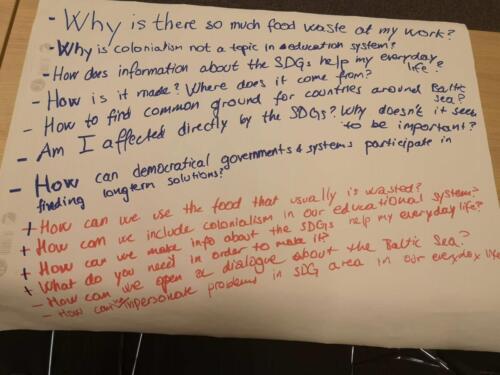 - Why is there so much food waste at my work?
- Why is colonialism not a topic in education system?
- How does information about the SDGs help my everyday life?
- How is it made? Where does it come from?
- How to find common ground for countries around Baltic Sea?
- Am I affected directly by the SDGs? Why doesn't it seem to be important?
- How can democratical governments & systems participate in
finding longterm solutions?
+ How can we use the food that usually is wasted?
+ How can we include colonialism in our educational system?
+ How can we make info about the SDGs help my everyday life?
+ What do you need in order to make it?
- How can we open a dialogue about the Baltic Sea?
- How can we impersonate problems in SDG area in our everyday life